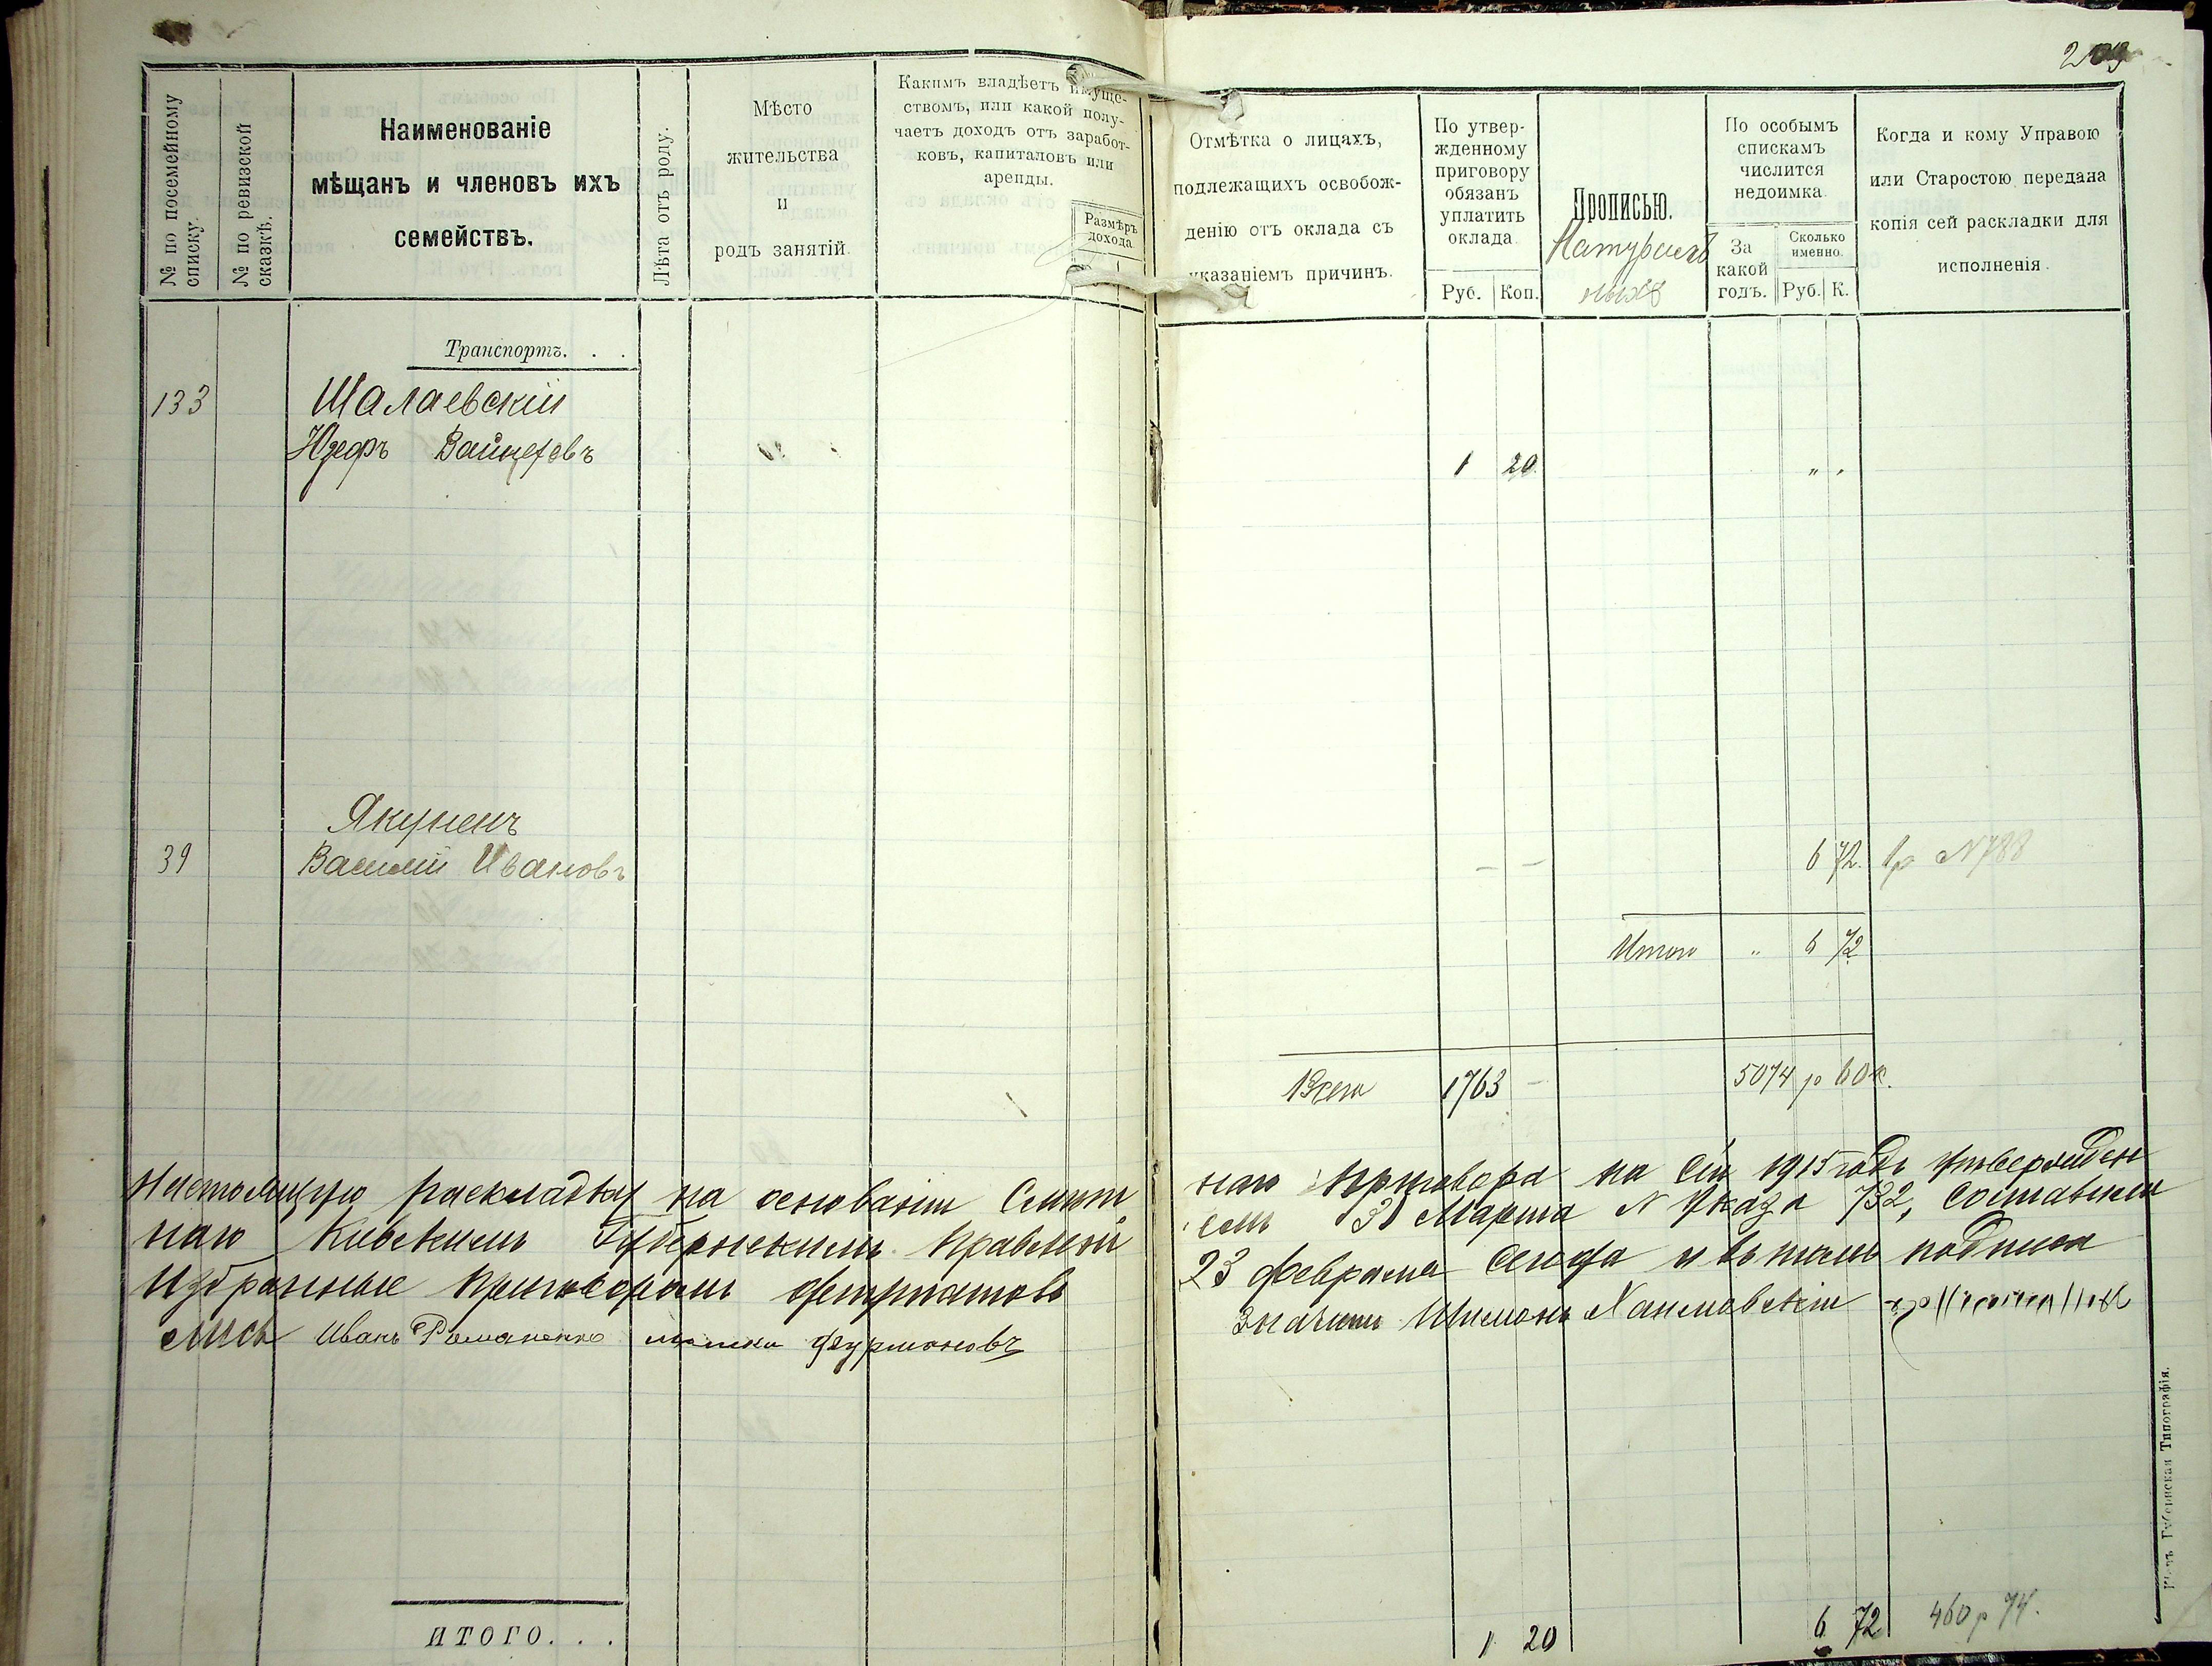 209
№ по посемейному
списку.
№ по ревизской
сказкѣ.
Наименованіе
мѣщанъ и членовъ ихъ
семействъ.
Лѣта отъ роду.
Мѣсто
жительства
и
родъ занятій.
Какимъ владѣетъ имуще-
ствомъ, или какой полу-
чаетъ доходъ отъ заработ-
ковъ, капиталовъ или
аренды.
Размѣръ
дохода
Отмѣтка о лицахъ,
подлежащихъ освобож-
денію отъ оклада съ
указаніемъ причинъ.
По утвер-
жденному
приговору
обязанъ
уплатить
оклада
Руб. Коп.
Прописью.
По особымъ
спискамъ
числится
недоимка.
За
какой
годъ.
Сколько
именно.
Руб. К.
Когда и кому Управою
или Старостою передана
копія сей раскладки для
исполненія.
Транспортъ. . .
133 Шалаевскій
1 20 " "
Якуненъ
39 Василій Ивановъ — — 6 72. №788
Итого " 6 72
Всего 1763 — 5074 р 60 к.
Настоящую раскладку на основаніи
наго Кіевскимъ Губернскимъ
Избранные приговоромъ
лись Иванъ Романенко Фурмановъ
наго приговора на сей 1915 годъ утвержден
Марта № Указа 732,
23 Февраля сего года и въ томъ подписа
Шимонъ
ИТОГО. . .
1 20 6 72 460 р 74.
Кіевъ Губернская Типографія.